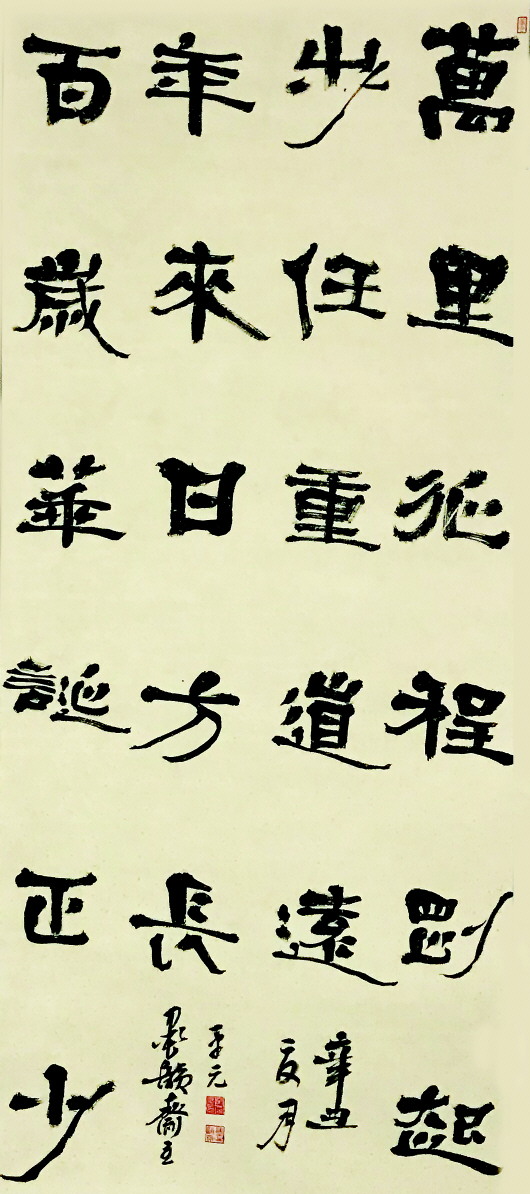 萬里征程剛起
步任重道遠
百歲華誕正少
年來日方長
辛丑
夏月
元
墨韻齋主